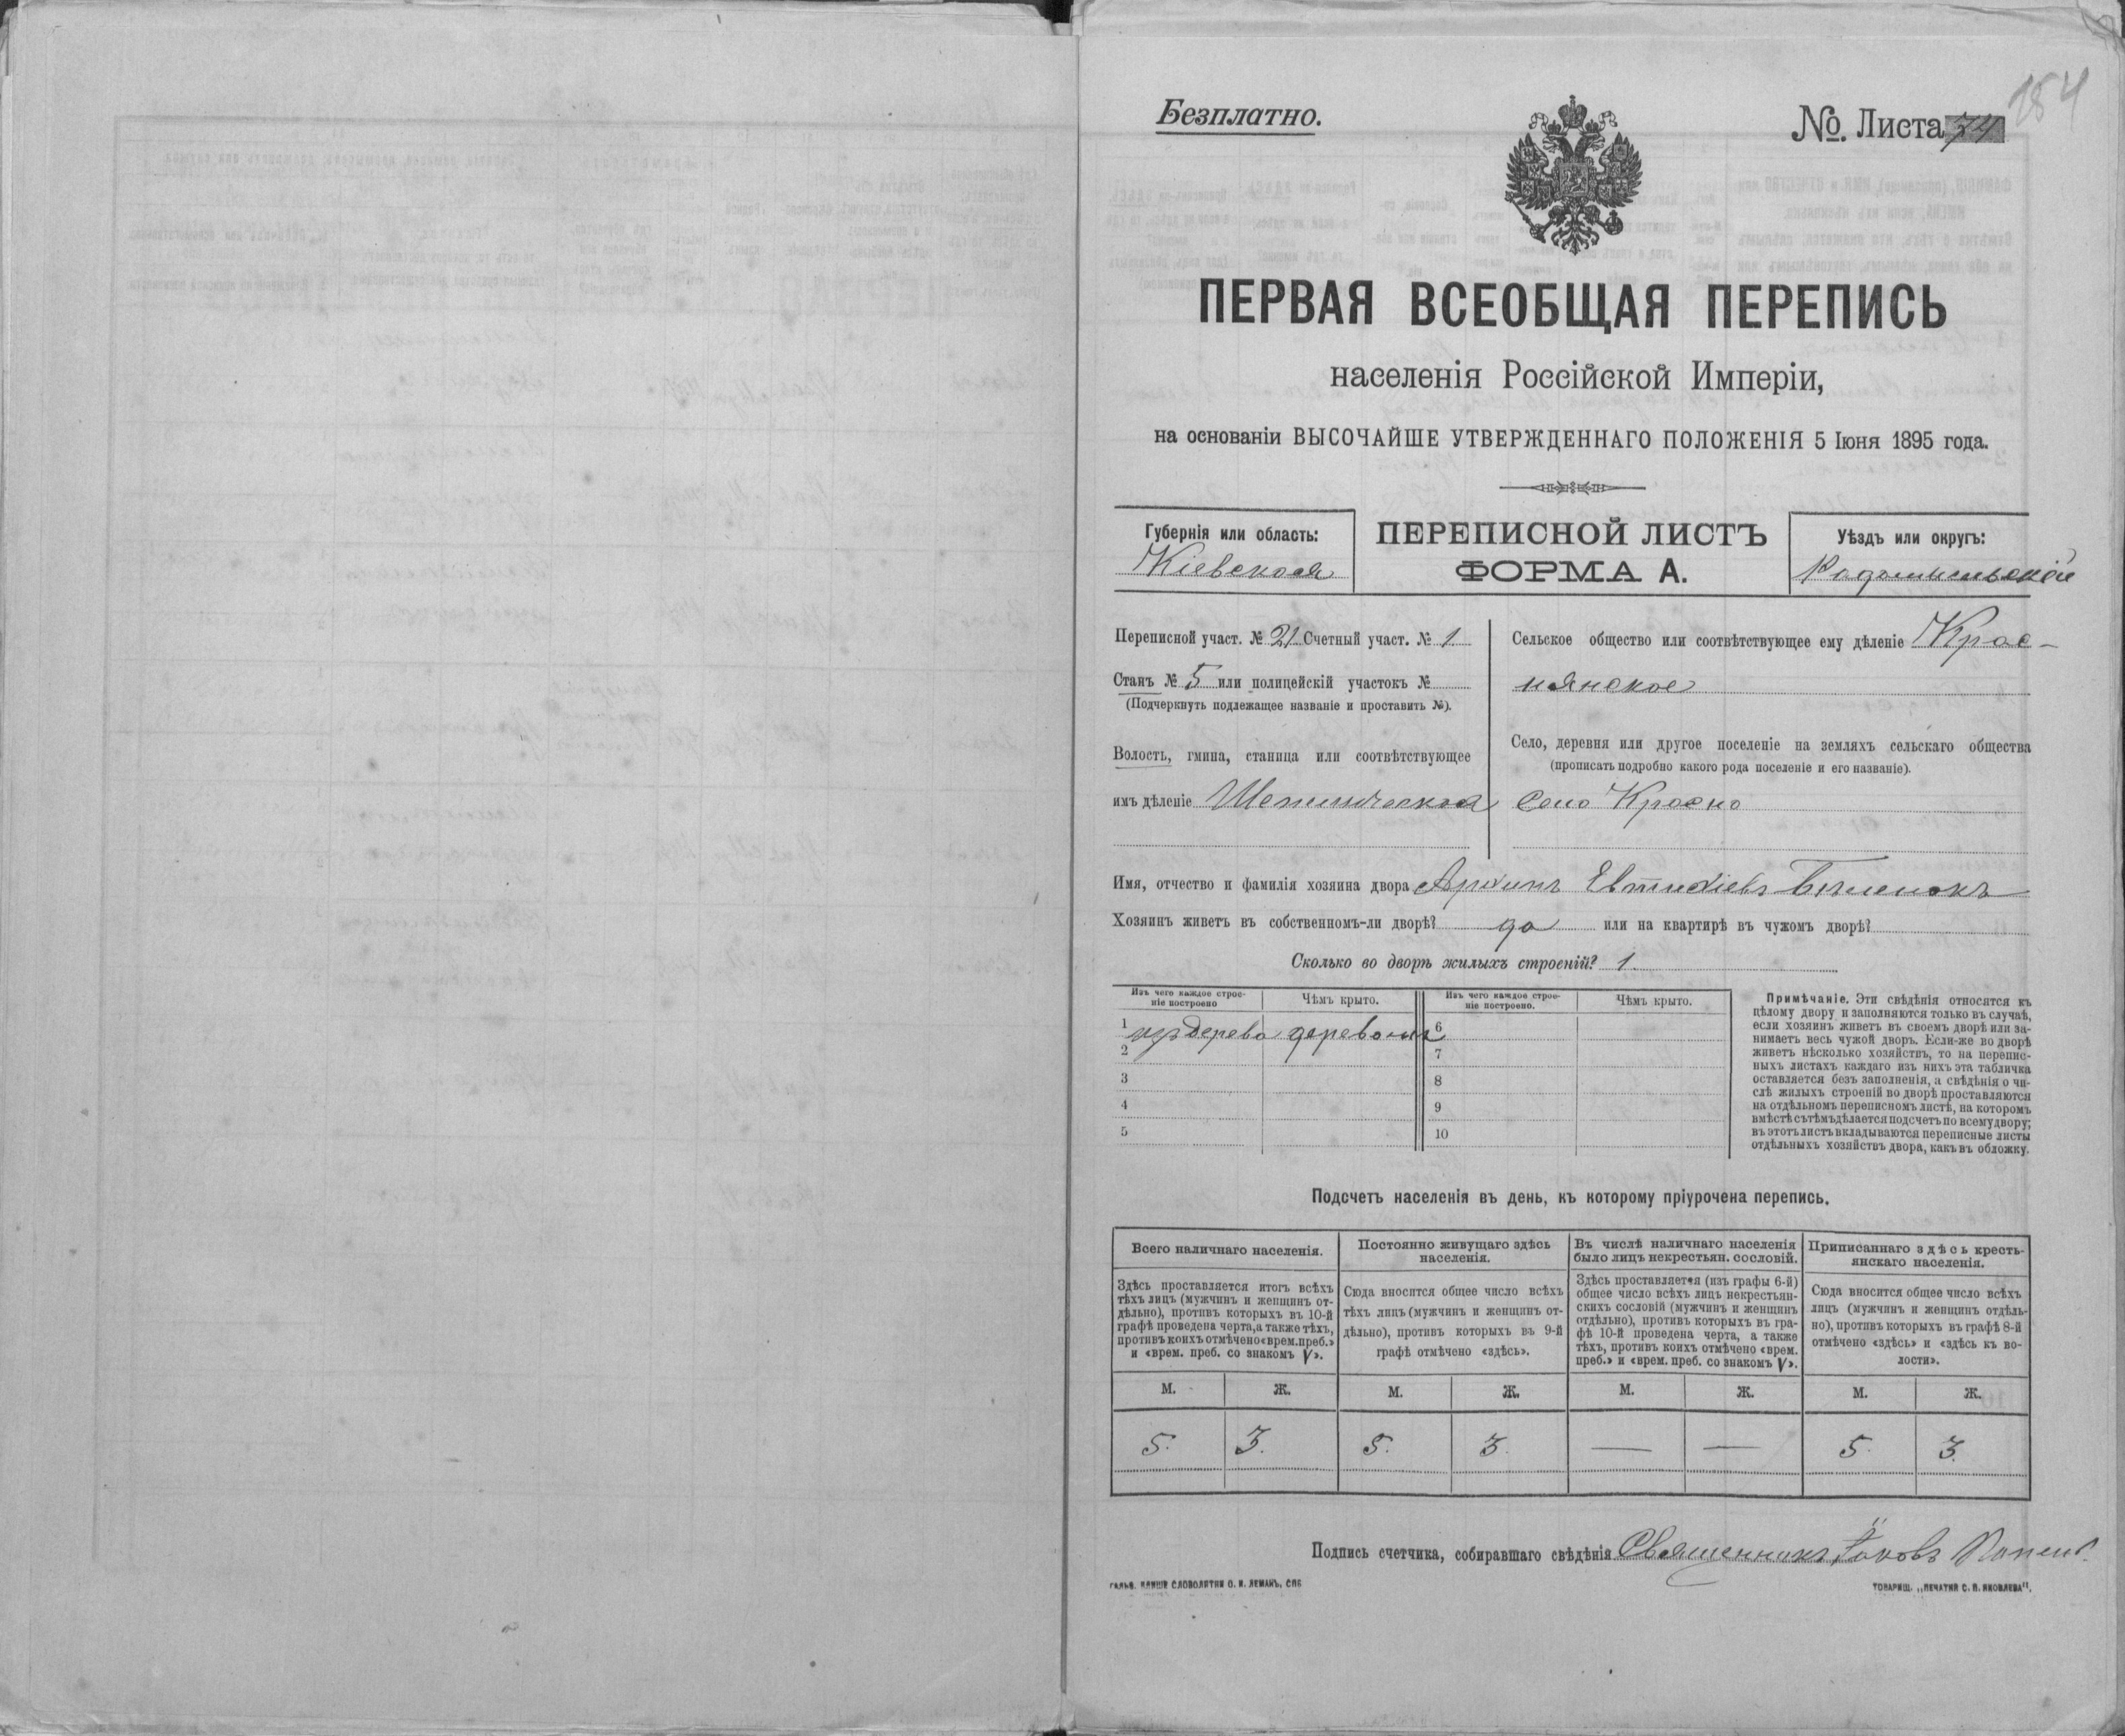 184
Безплатно.
№. Листа 74
ПЕРВАЯ ВСЕОБЩАЯ ПЕРЕПИСЬ
населенія Россійской Имперіи,
на основаніи ВЫСОЧАЙШЕ УТВЕРЖДЕННАГО ПОЛОЖЕНІЯ 5 Іюня 1895 года.
Губернія или область:
Кіевская
ПЕРЕПИСНОЙ ЛИСТЪ
ФОРМА А.
Уѣздъ или округъ:
Радомысльскій
Переписной участ. № 21 Счетный участ. № 1.
Станъ № 5 или полицейскій участокъ №
(Подчеркнуть подлежащее названіе и проставить №).
Волость, гмина, станица или соотвѣтствующее
имъ дѣленіе Шепеличская
Сельское общество или соотвѣтствующее ему дѣленіе Крас-
нянское
Село, деревня или другое поселеніе на земляхъ сельскаго общества
(прописать подробно какого рода поселеніе и его названіе).
Село Красно
Имя, отчество и фамилія хозяина двора Архипъ Евтихіевъ
Хозяинъ живетъ въ собственномъ-ли дворѣ? да или на квартирѣ въ чужомъ дворѣ?
Сколько во дворѣ жилыхъ строеній? 1.
Изъ чего каждое строе-
ніе построено
Чѣмъ крыто.
Изъ чего каждое строе-
ніе построено.
Чѣмъ крыто.
1 изъ дерева деревомъ 6
2 7
3 8
4 9
5 10
Примѣчаніе. Эти свѣдѣнія относятся къ
цѣлому двору и заполняются только въ случаѣ,
если хозяинъ живетъ въ своемъ дворѣ или за-
нимаетъ весь чужой дворъ. Если-же во дворѣ
живетъ нѣсколько хозяйствъ, то на перепис-
ныхъ листахъ каждаго изъ нихъ эта табличка
оставляется безъ заполненія, а свѣдѣнія о чи-
слѣ жилыхъ строеній во дворѣ проставляются
на отдѣльномъ переписномъ листѣ, на которомъ
вмѣстѣ съ тѣмъ дѣлается подсчетъ по всему двору;
въ этотъ листъ вкладываются переписные листы
отдѣльныхъ хозяйствъ двора, какъ въ обложку.
Подсчетъ населенія въ день, къ которому пріурочена перепись.
Всего наличнаго населенія.
Здѣсь проставляется итогъ всѣхъ
тѣхъ лицъ (мужчинъ и женщинъ от-
дѣльно), противъ которыхъ въ 10-й
графѣ проведена черта, а также тѣхъ,
противъ коихъ отмѣчено «врем. преб.»
и «врем. преб. со знакомъ V».
Постоянно живущаго здѣсь
населенія.
Сюда вносится общее число всѣхъ
тѣхъ лицъ (мужчинъ и женщинъ от-
дѣльно), противъ которыхъ въ 9-й
графѣ отмѣчено «здѣсь».
Въ числѣ наличнаго населенія
было лицъ некрестьян. сословій.
Здѣсь проставляется (изъ графы 6-й)
общее число всѣхъ лицъ некрестьян-
скихъ сословій (мужчинъ и женщинъ
отдѣльно), противъ которыхъ въ гра-
фѣ 10-й проведена черта, а также
тѣхъ, противъ коихъ отмѣчено «врем.
преб.» и «врем. преб. со знакомъ V».
Приписаннаго здѣсь кресть-
янскаго населенія.
Сюда вносится общее число всѣхъ
лицъ (мужчинъ и женщинъ отдѣль-
но), противъ которыхъ въ графѣ 8-й
отмѣчено «здѣсь» и «здѣсь къ во-
лости».
М. Ж. М. Ж. М. Ж. М. Ж.
5. 3. 5. 3. — — 5. 3.
Подпись счетчика, собиравшаго свѣдѣнія Священникъ Іаковъ
ГАЛЬВ. КЛИШЕ СЛОВОЛИТНИ О. И. ЛЕМАНЪ, СПБ
ТОВАРИЩ. „ПЕЧАТНЯ С. П. ЯКОВЛЕВА".